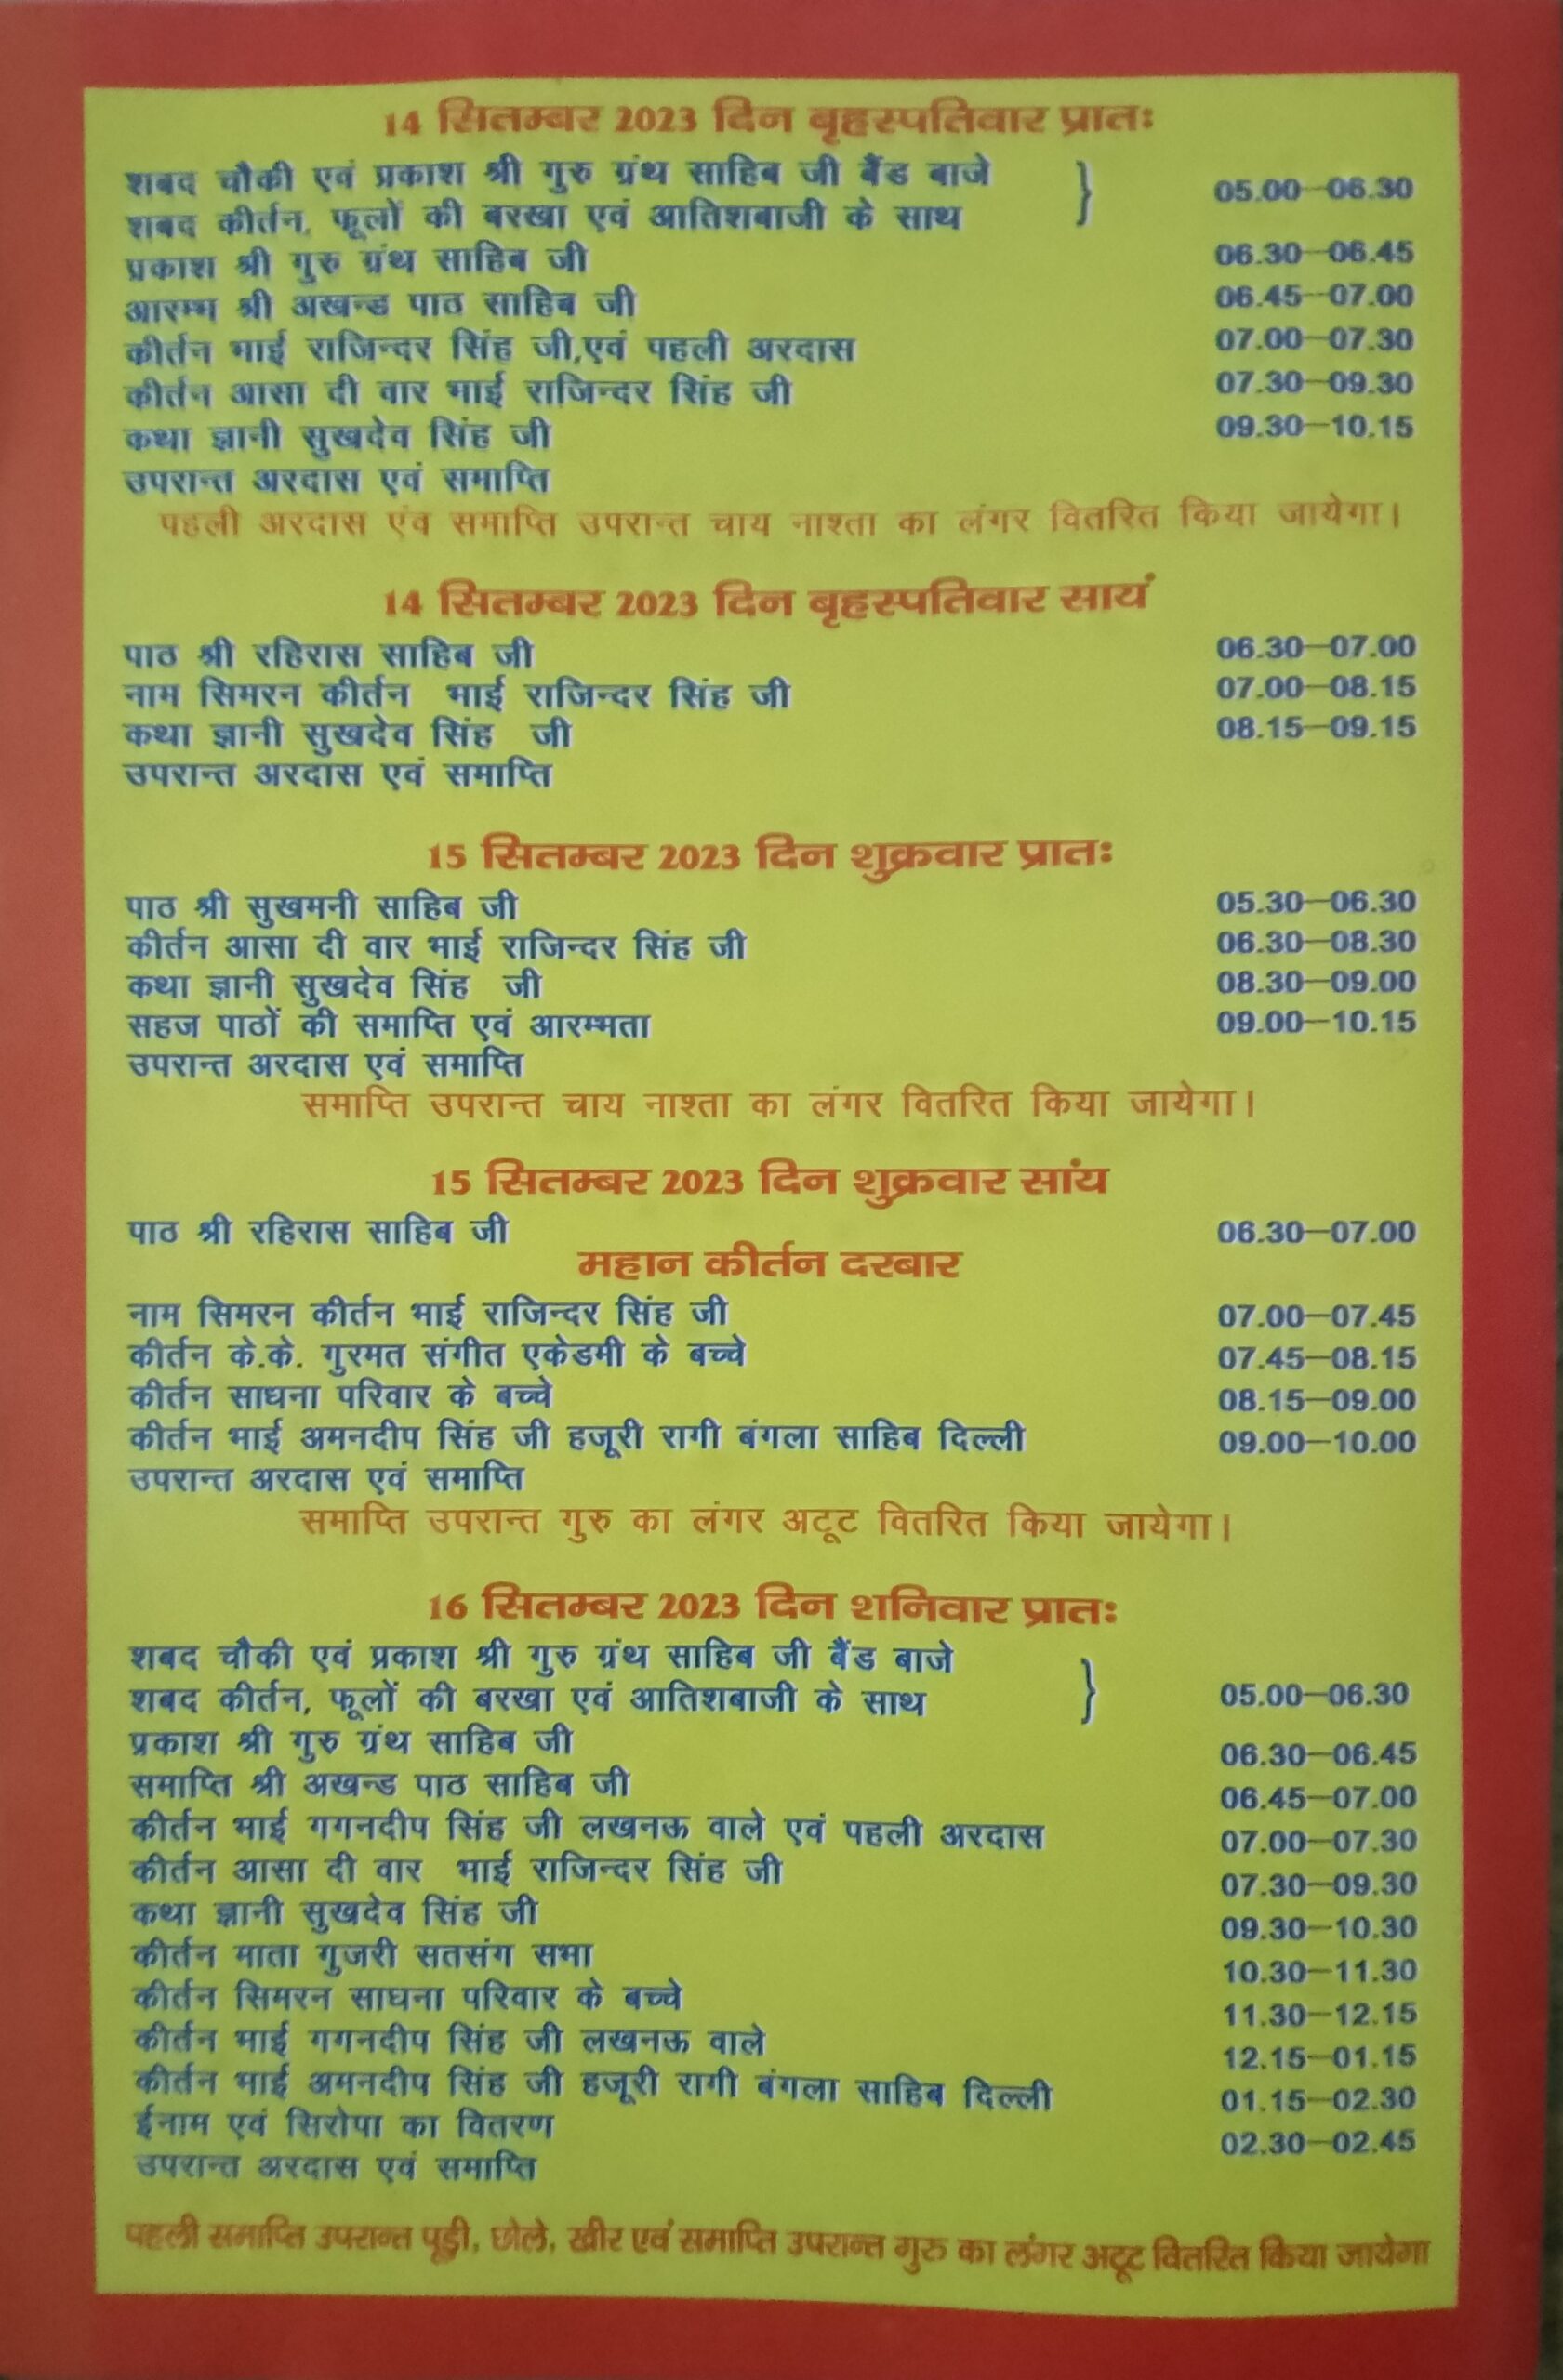 14 सितम्बर 2023 दिन बृहस्पतिवार प्रातः
शबद चौकी एवं प्रकाश श्री गुरु ग्रंथ साहिब जी बैंड बाजे
शबद कीर्तन, फूलों की बरखा एवं आतिशबाजी के साथ } 05.00—06.30
प्रकाश श्री गुरु ग्रंथ साहिब जी 06.30—06.45
आरम्भ श्री अखन्ड पाठ साहिब जी 06.45—07.00
कीर्तन भाई राजिन्दर सिंह जी,एवं पहली अरदास 07.00—07.30
कीर्तन आसा दी वार भाई राजिन्दर सिंह जी 07.30—09.30
कथा ज्ञानी सुखदेव सिंह जी 09.30—10.15
उपरान्त अरदास एवं समाप्ति
पहली अरदास एंव समाप्ति उपरान्त चाय नाश्ता का लंगर वितरित किया जायेगा।
14 सितम्बर 2023 दिन बृहस्पतिवार सायं
पाठ श्री रहिरास साहिब जी 06.30—07.00
नाम सिमरन कीर्तन भाई राजिन्दर सिंह जी 07.00—08.15
कथा ज्ञानी सुखदेव सिंह जी 08.15—09.15
उपरान्त अरदास एवं समाप्ति
15 सितम्बर 2023 दिन शुक्रवार प्रातः
पाठ श्री सुखमनी साहिब जी 05.30—06.30
कीर्तन आसा दी वार भाई राजिन्दर सिंह जी 06.30—08.30
कथा ज्ञानी सुखदेव सिंह जी 08.30—09.00
सहज पाठों की समाप्ति एवं आरम्भता 09.00—10.15
उपरान्त अरदास एवं समाप्ति
समाप्ति उपरान्त चाय नाश्ता का लंगर वितरित किया जायेगा।
15 सितम्बर 2023 दिन शुक्रवार सांय
पाठ श्री रहिरास साहिब जी 06.30—07.00
महान कीर्तन दरबार
नाम सिमरन कीर्तन भाई राजिन्दर सिंह जी 07.00—07.45
कीर्तन के.के. गुरमत संगीत एकेडमी के बच्चे 07.45—08.15
कीर्तन साधना परिवार के बच्चे 08.15—09.00
कीर्तन भाई अमनदीप सिंह जी हजूरी रागी बंगला साहिब दिल्ली 09.00—10.00
उपरान्त अरदास एवं समाप्ति
समाप्ति उपरान्त गुरु का लंगर अटूट वितरित किया जायेगा।
16 सितम्बर 2023 दिन शनिवार प्रातः
शबद चौकी एवं प्रकाश श्री गुरु ग्रंथ साहिब जी बैंड बाजे
शबद कीर्तन, फूलों की बरखा एवं आतिशबाजी के साथ } 05.00—06.30
प्रकाश श्री गुरु ग्रंथ साहिब जी 06.30—06.45
समाप्ति श्री अखन्ड पाठ साहिब जी 06.45—07.00
कीर्तन भाई गगनदीप सिंह जी लखनऊ वाले एवं पहली अरदास 07.00—07.30
कीर्तन आसा दी वार भाई राजिन्दर सिंह जी 07.30—09.30
कथा ज्ञानी सुखदेव सिंह जी 09.30—10.30
कीर्तन माता गुजरी सतसंग सभा 10.30—11.30
कीर्तन सिमरन साधना परिवार के बच्चे 11.30—12.15
कीर्तन भाई गगनदीप सिंह जी लखनऊ वाले 12.15—01.15
कीर्तन भाई अमनदीप सिंह जी हजूरी रागी बंगला साहिब दिल्ली 01.15—02.30
ईनाम एवं सिरोपा का वितरण 02.30—02.45
उपरान्त अरदास एवं समाप्ति
पहली समाप्ति उपरान्त पूड़ी, छोले, खीर एवं समाप्ति उपरान्त गुरु का लंगर अटूट वितरित किया जायेगा